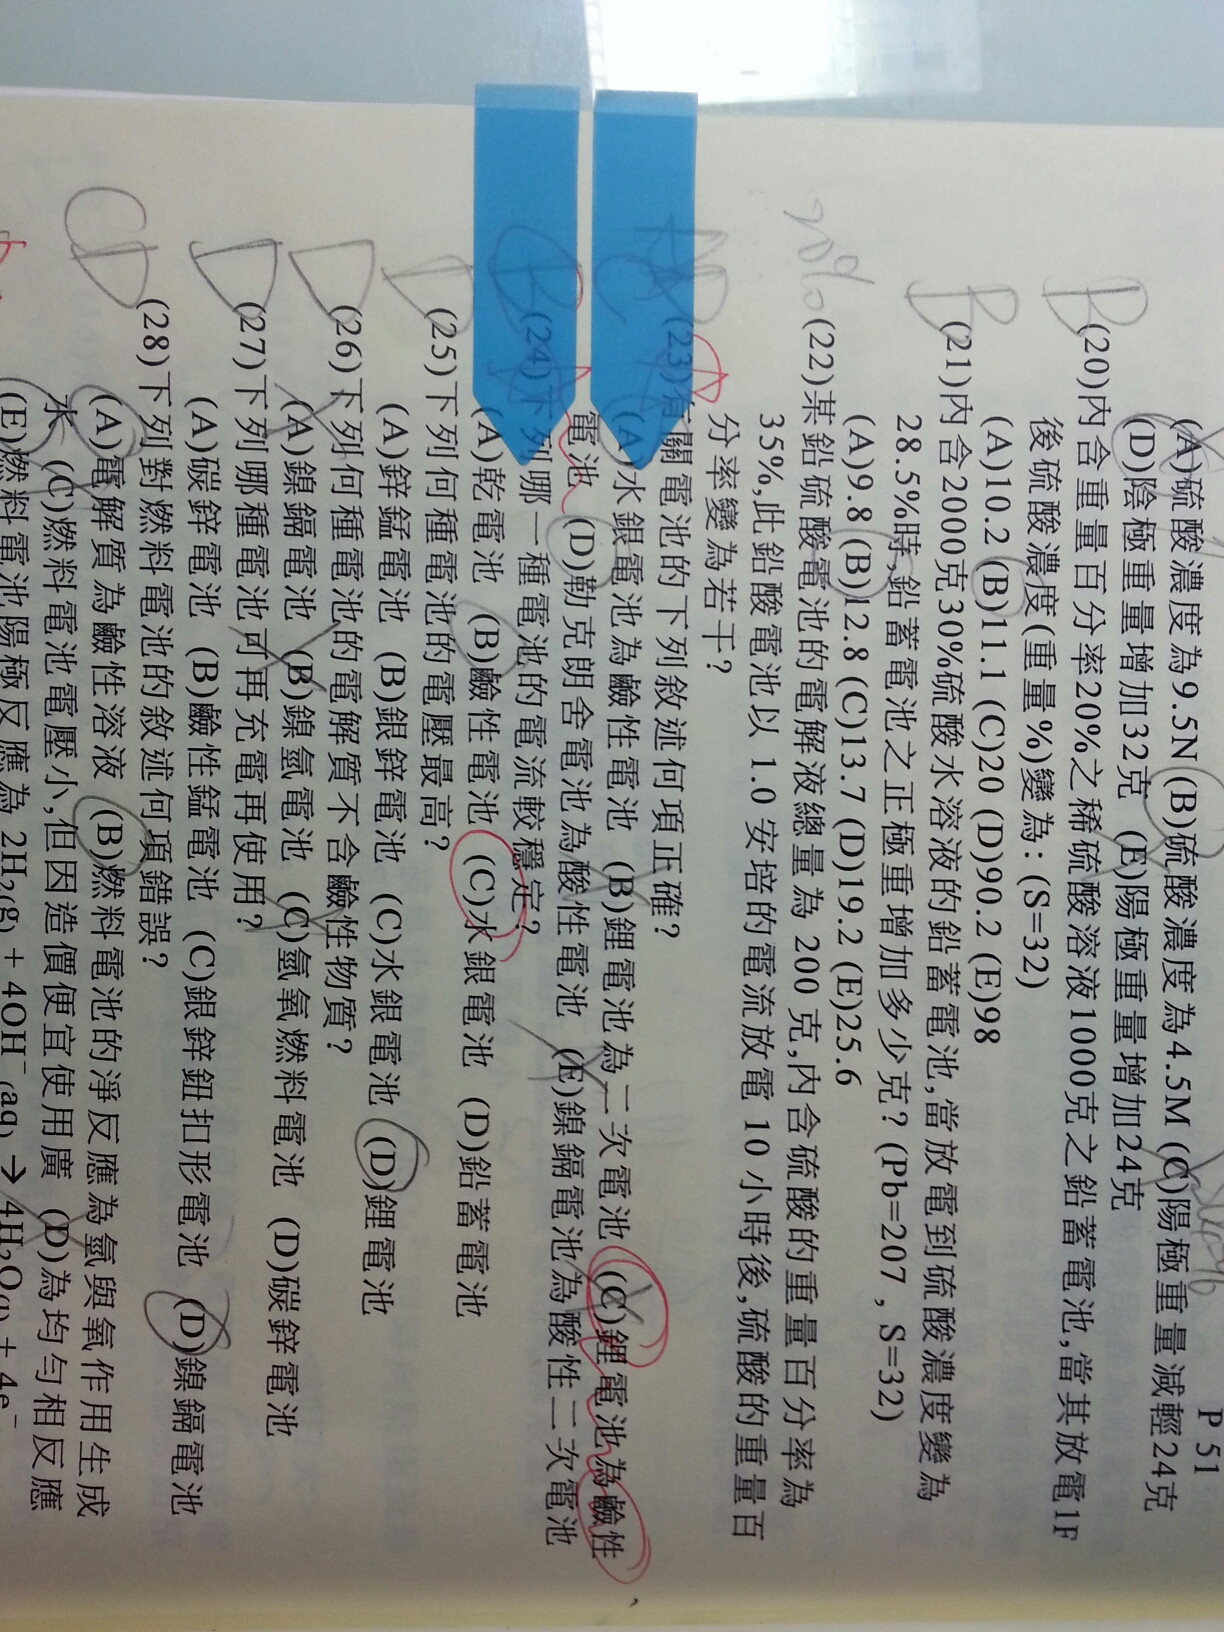 P 51
(A)硫酸濃度為9.5N (B)硫酸濃度為4.5M (C)陽極重量減輕24克
(D)陰極重量增加32克 (E)陽極重量增加24克
B
(20)內含重量百分率20%之稀硫酸溶液1000克之鉛蓄電池,當其放電1F
後硫酸濃度(重量%)變為: (S=32)
(A)10.2 (B)11.1 (C)20 (D)90.2 (E)98
B
(21)內含2000克30%硫酸水溶液的鉛蓄電池,當放電到硫酸濃度變為
28.5%時,鉛蓄電池之正極重增加多少克? (Pb=207 , S=32)
(A)9.8 (B)12.8 (C)13.7 (D)19.2 (E)25.6
20%
(22)某鉛硫酸電池的電解液總量為 200 克,內含硫酸的重量百分率為
35%,此鉛酸電池以 1.0 安培的電流放電 10 小時後,硫酸的重量百
分率變為若干?
(23)有關電池的下列敘述何項正確?
(A)水銀電池為鹼性電池 (B)鋰電池為二次電池 (C)鋰電池為鹼性
電池 (D)勒克朗舍電池為酸性電池 (E)鎳鎘電池為酸性二次電池
B
(24)下列哪一種電池的電流較穩定?
(A)乾電池 (B)鹼性電池 (C)水銀電池 (D)鉛蓄電池
D
(25)下列何種電池的電壓最高?
(A)鋅錳電池 (B)銀鋅電池 (C)水銀電池 (D)鋰電池
D
(26)下列何種電池的電解質不含鹼性物質?
(A)鎳鎘電池 (B)鎳氫電池 (C)氫氧燃料電池 (D)碳鋅電池
D
(27)下列哪種電池可再充電再使用?
(A)碳鋅電池 (B)鹼性錳電池 (C)銀鋅鈕扣形電池 (D)鎳鎘電池
CD
(28)下列對燃料電池的敘述何項錯誤?
(A)電解質為鹼性溶液 (B)燃料電池的淨反應為氫與氧作用生成
水 (C)燃料電池電壓小,但因造價便宜使用廣 (D)為均勻相反應
(E)燃料電池陽極反應為 2H₂(g) + 4OH⁻(aq) → 4H₂O(l) + 4e⁻